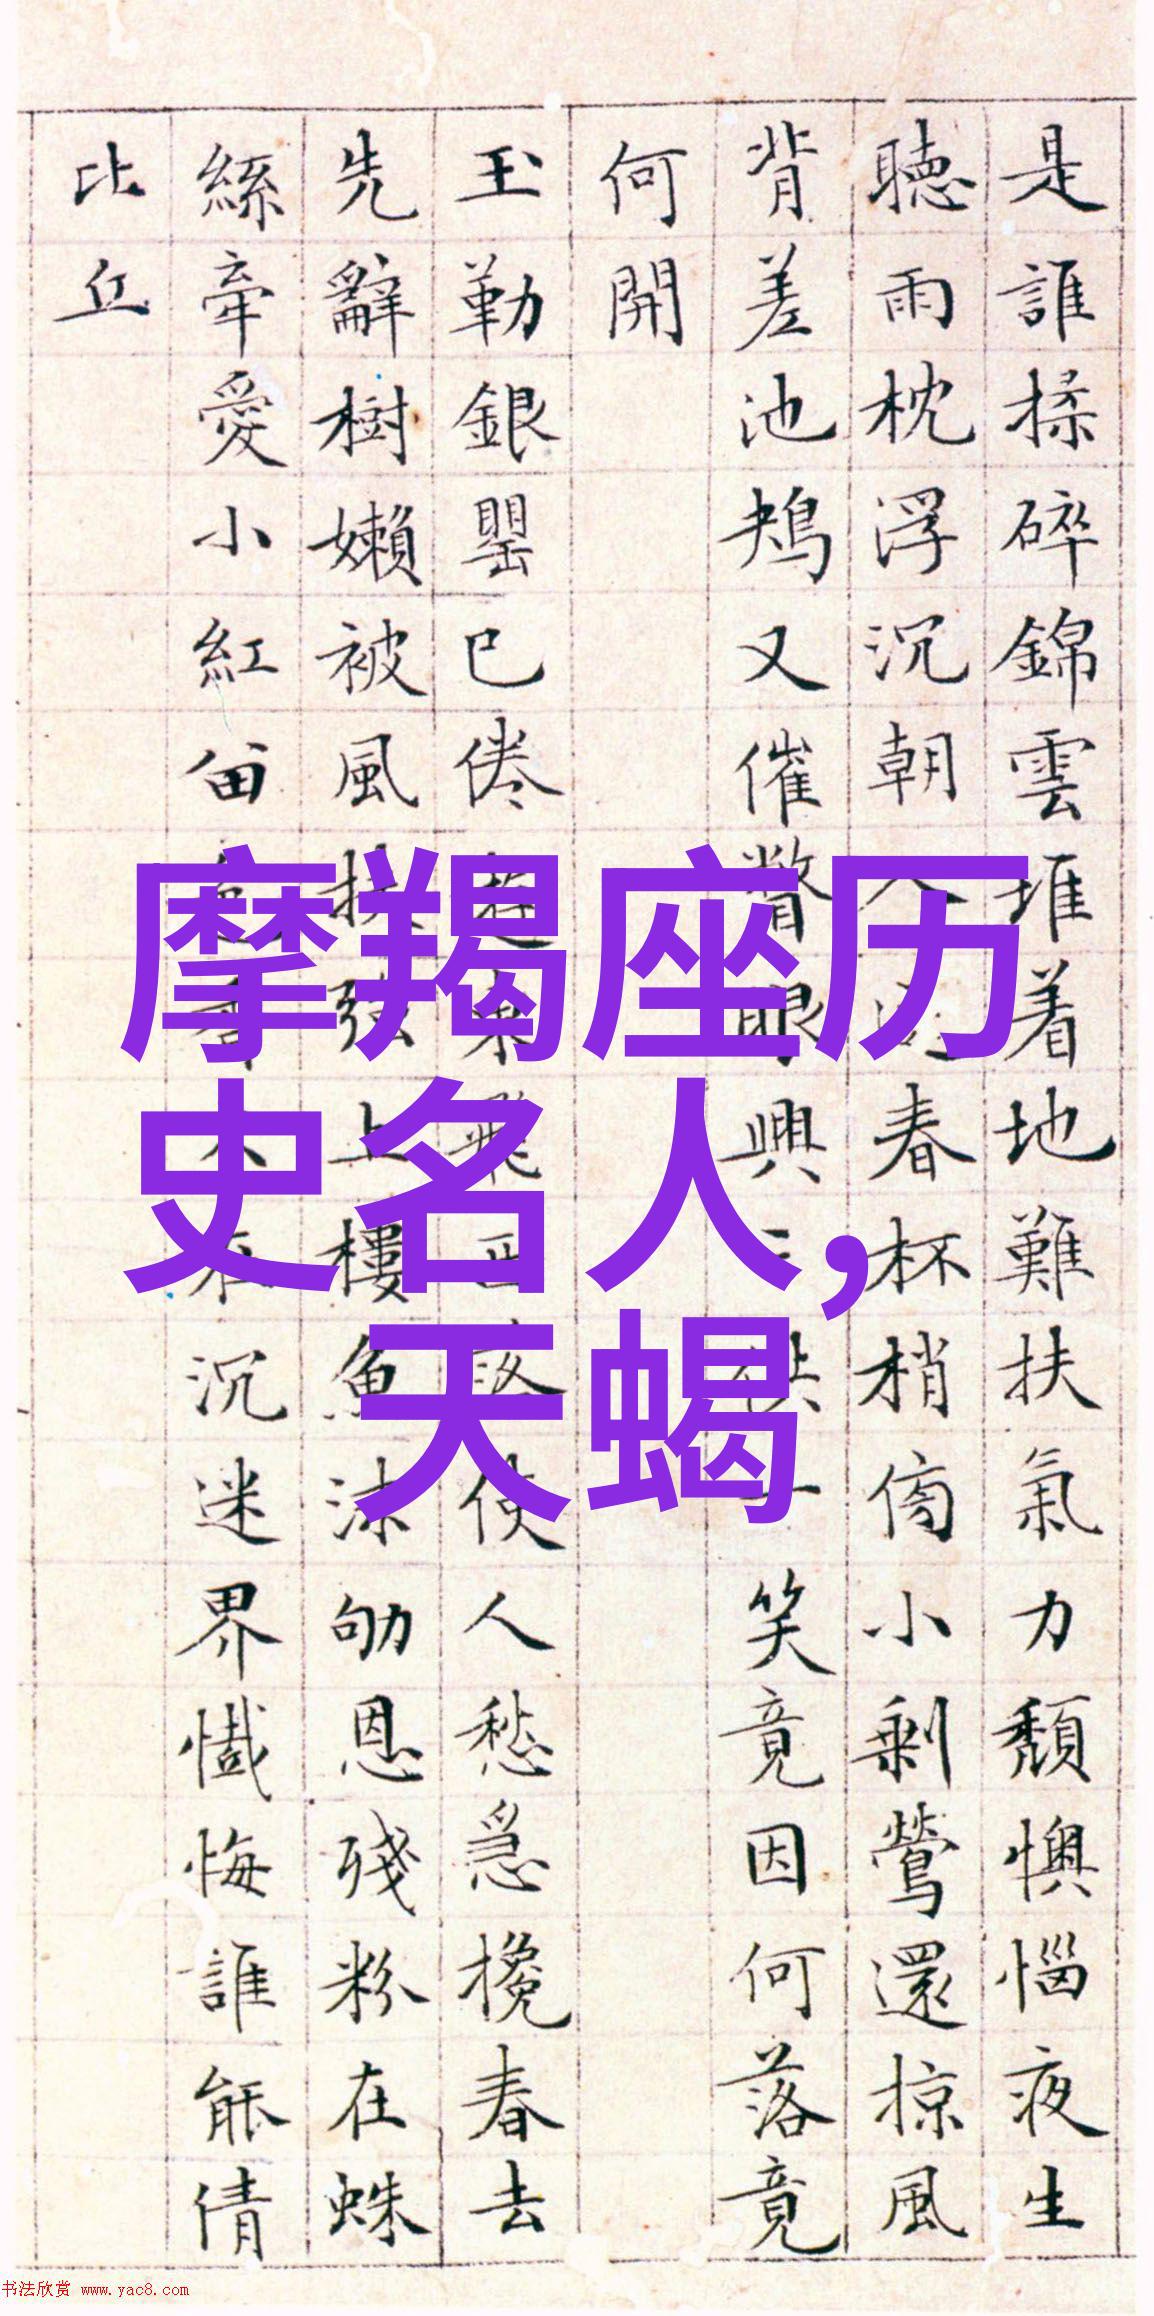 是誰揉碎錦雲堆着地難扶氣力頽懊惱夜生
聽雨枕浮沉朝入春杯梢傍小剩鶯還掠風
背差池鳺又催瞥眼興笑竟因何落竟
何開
玉勒銀罌已倦飛西使人愁急攙春去
先辭樹嬾被風扶上樓魚沫劬恩殘粉在蛛
絲牽愛小紅留沉迷界懺悔誰能倩
比丘
摩羯座历
史名人,
天蝎
书法欣赏 www.yac8.com